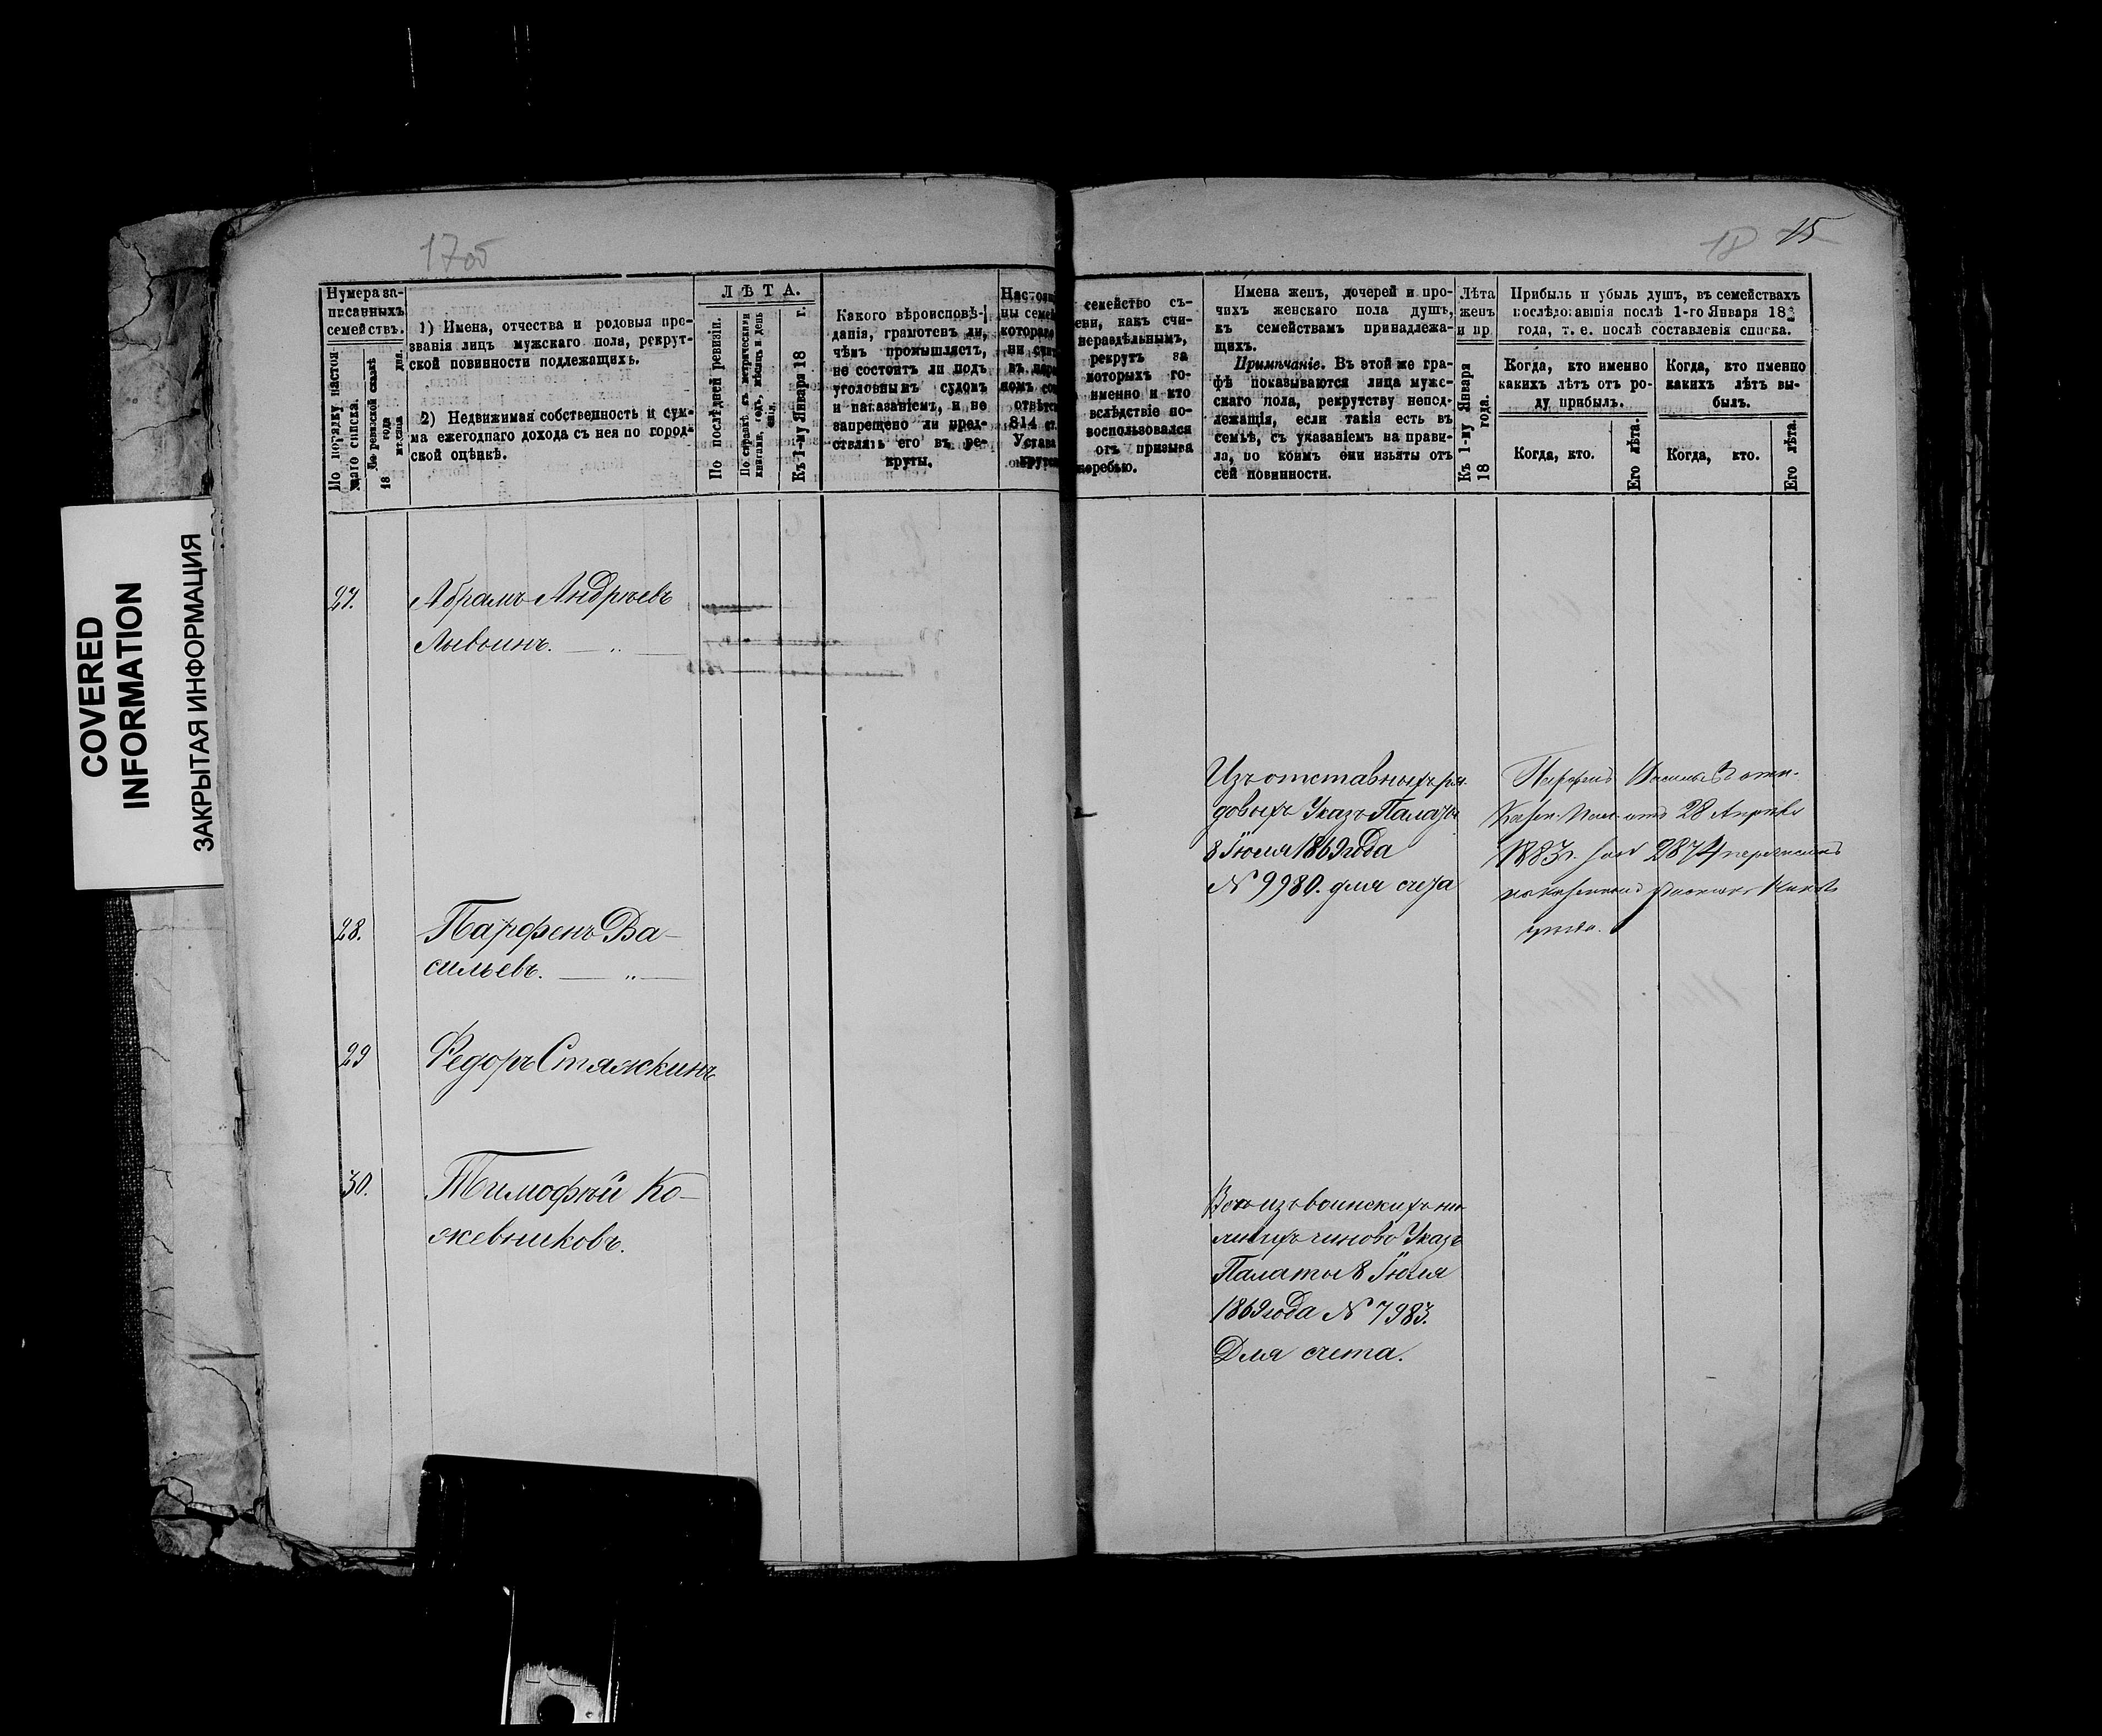 COVERED
INFORMATION
ЗАКРЫТАЯ ИНФОРМАЦИЯ
17об
18 15
Нумера за-
писанныхъ
семействъ.
По порядку настоя-
щаго списка.
По ревизской сказкѣ
18 года
1) Имена, отчества и родовыя про-
званія лицъ мужскаго пола, рекрут-
ской повинности подлежащихъ.
2) Недвижимая собственность и сум-
ма ежегоднаго дохода съ нея по город-
ской оцѣнкѣ.
ЛѢТА.
По послѣдней ревизіи.
По справкѣ съ метрическими
книгами, годъ, мѣсяцъ и день
Къ 1-му Января 18 г.
Какого вѣроисповѣ-
данія, грамотенъ ли,
чѣмъ промышляетъ,
не состоитъ ли подъ
уголовнымъ судомъ
и наказаніемъ, и не
запрещено ли пред-
ставлять его въ ре-
круты.
814 ст.
Устава
семейство съ-
какъ счи-
нераздѣльнымъ,
рекрутъ за
которыхъ го-
именно и кто
вслѣдствіе по-
воспользовался
отъ призыва
жеребью.
Имена женъ, дочерей и про-
чихъ женскаго пола душъ,
къ семействамъ принадлежа-
щихъ.
Примѣчаніе. Въ этой же гра-
фѣ показываются лица муже-
скаго пола, рекрутству непод-
лежащія, если такія есть въ
семьѣ, съ указаніемъ на прави-
ла, по коимъ они изъяты отъ
сей повинности.
Лѣта
женъ
и пр.
Къ 1-му Января
18 года.
Прибыль и убыль душъ, въ семействахъ
послѣдовавшія послѣ 1-го Января 18
года, т. е. послѣ составленія списка.
Когда, кто именно
какихъ лѣтъ отъ ро-
ду прибылъ.
Когда, кто именно
какихъ лѣтъ вы-
былъ.
Когда, кто.
Его лѣта.
Когда, кто.
Его лѣта.
27.
Абрамъ Андреевъ
Лывинъ.
Изъ отставныхъ ря-
довыхъ Указъ Палаты
8 Іюля 1869 года
№ 9980. для счета
28 Апрѣля
1883г. 2874
28.
Парфенъ Ва-
сильевъ.
29
Федоръ Стяжкинъ
30.
Тимофѣй Ко-
жевниковъ.
изъ воинскихъ ни-
жнихъ чиновъ Указъ
Палаты 8 Іюля
1869 года № 7983.
Для счета.